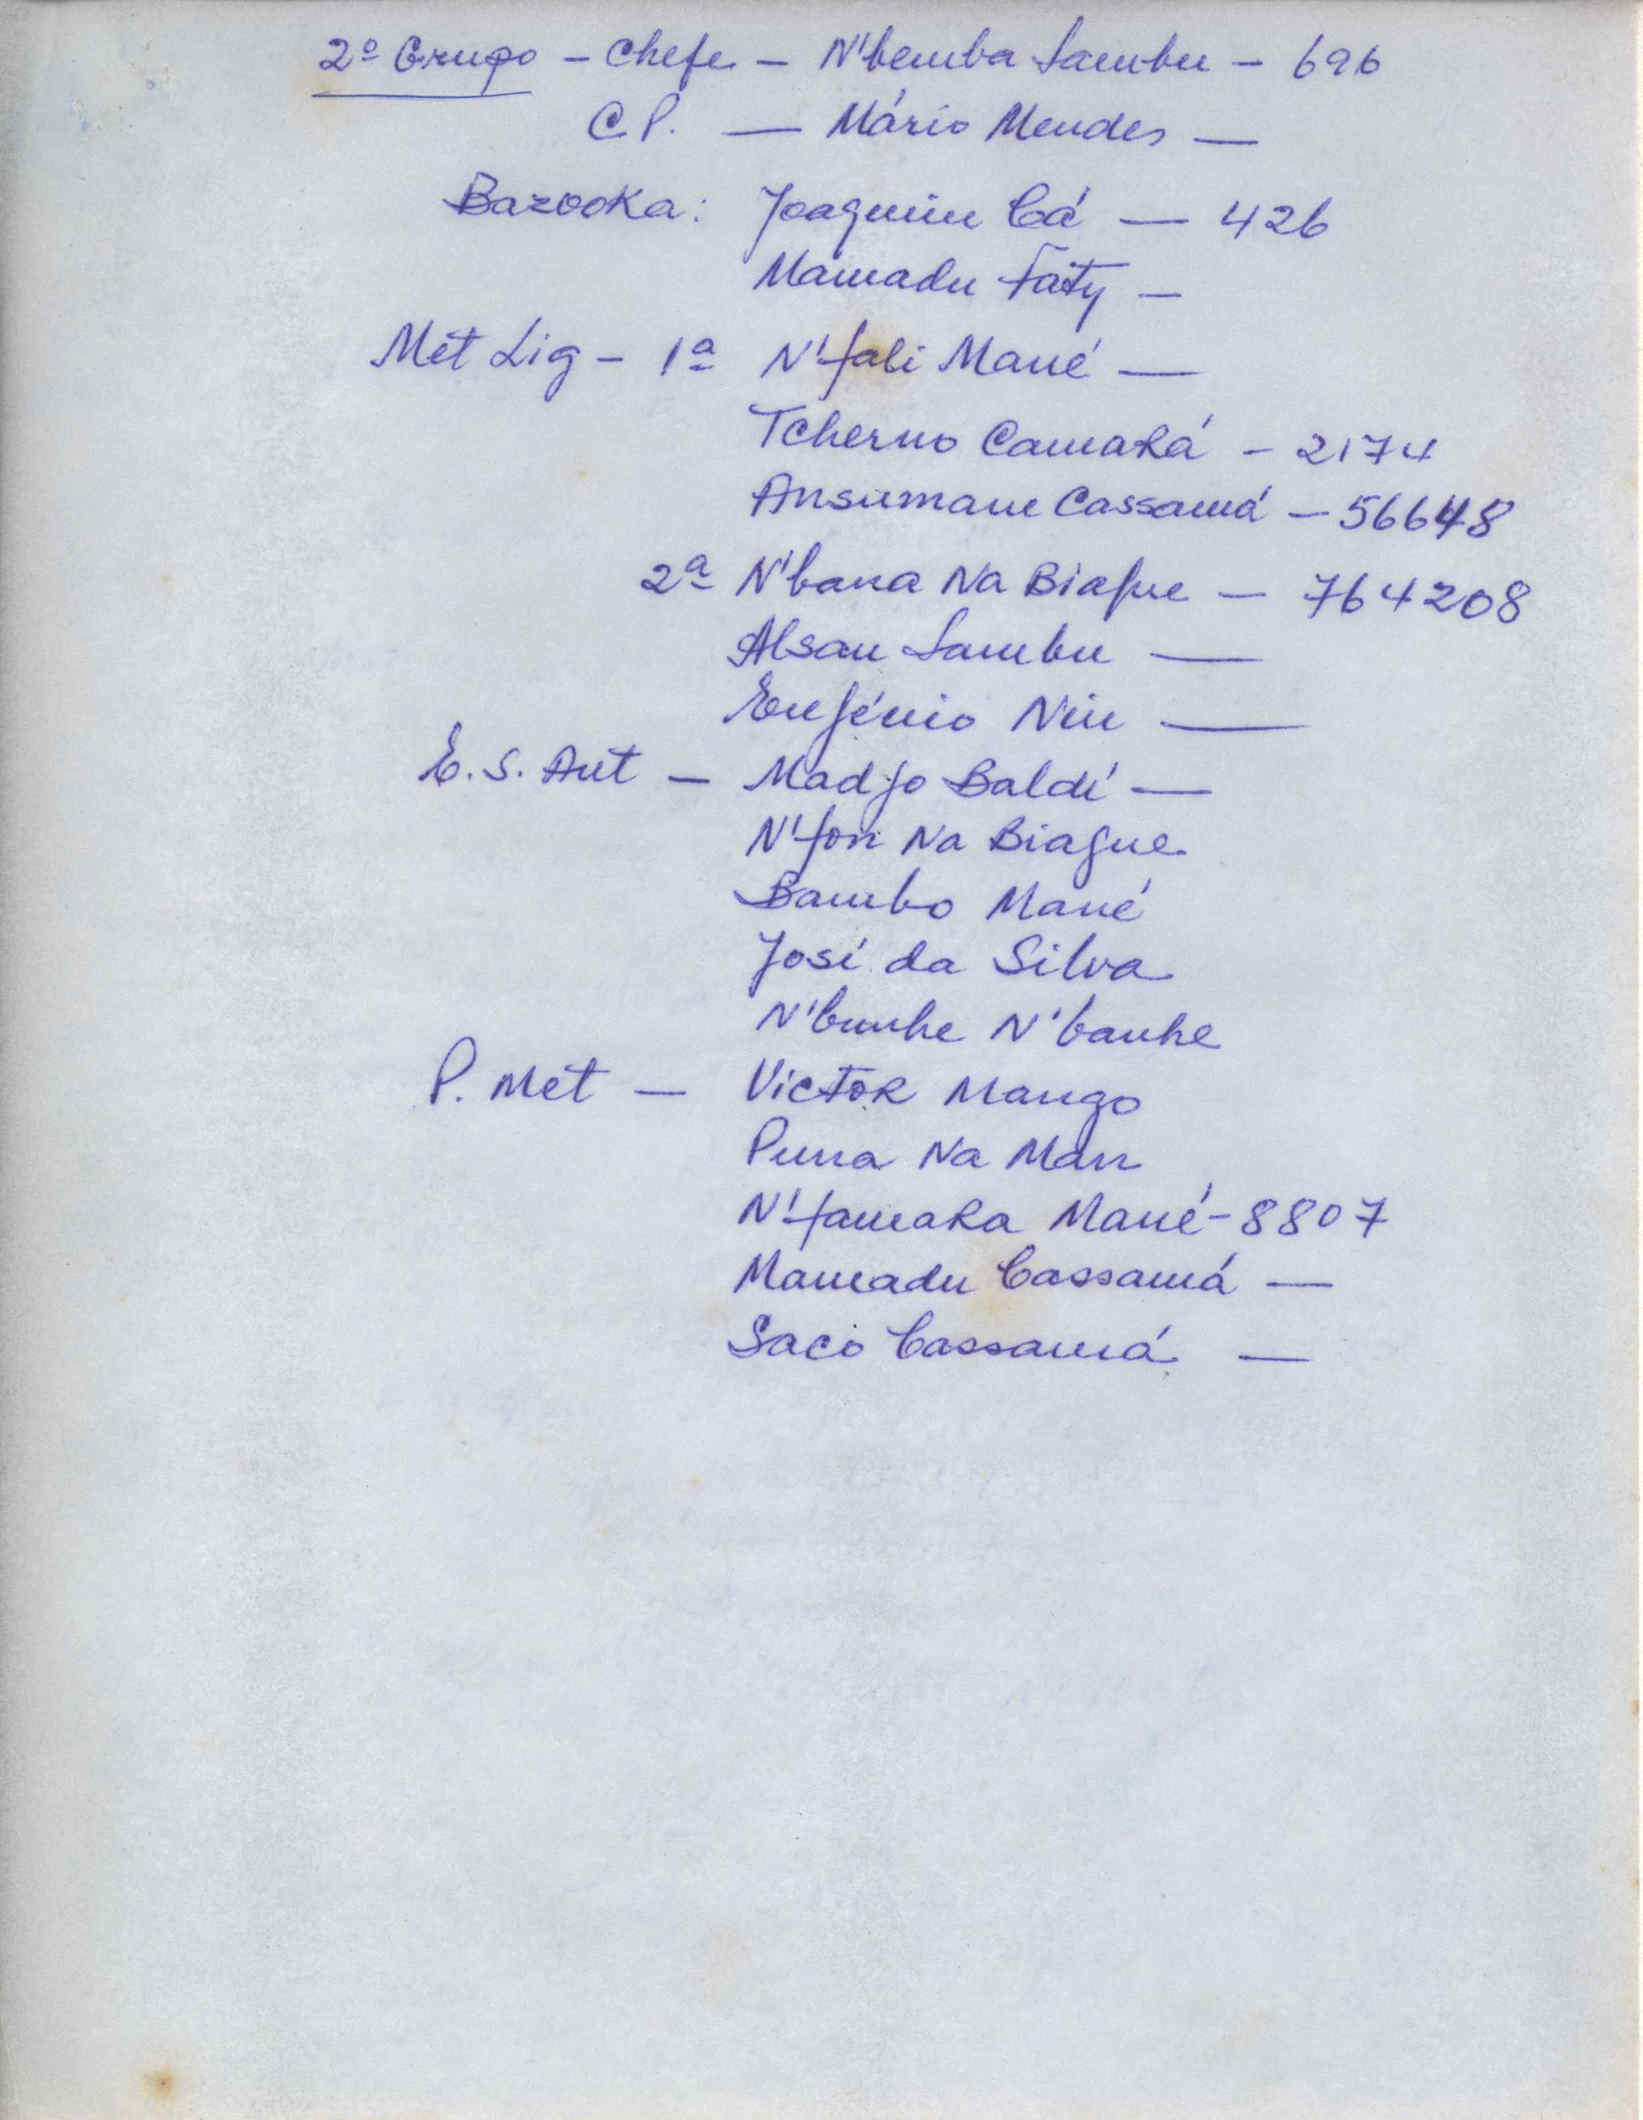 2º Grupo - Chefe - N'bemba Sambu - 696
C P. — Mário Mendes —
Bazooka: Joaquim Cá — 426
Mamadu Faty —
Met Lig - 1ª N'fali Mané —
Tcherno Camará - 2174
Ansumane Cassamá - 56648
2ª N'bana Na Biague — 764208
Alsau Sambu —
Eugénio Nin —
E. S. Aut — Madjo Baldé —
N'fon Na Biague
Bambo Mané
José da Silva
N'bunhe N'banhe
P. Met — Victor Mango
Puna Na Man
N'famara Mané - 8807
Mamadu Cassamá —
Saco Cassamá —